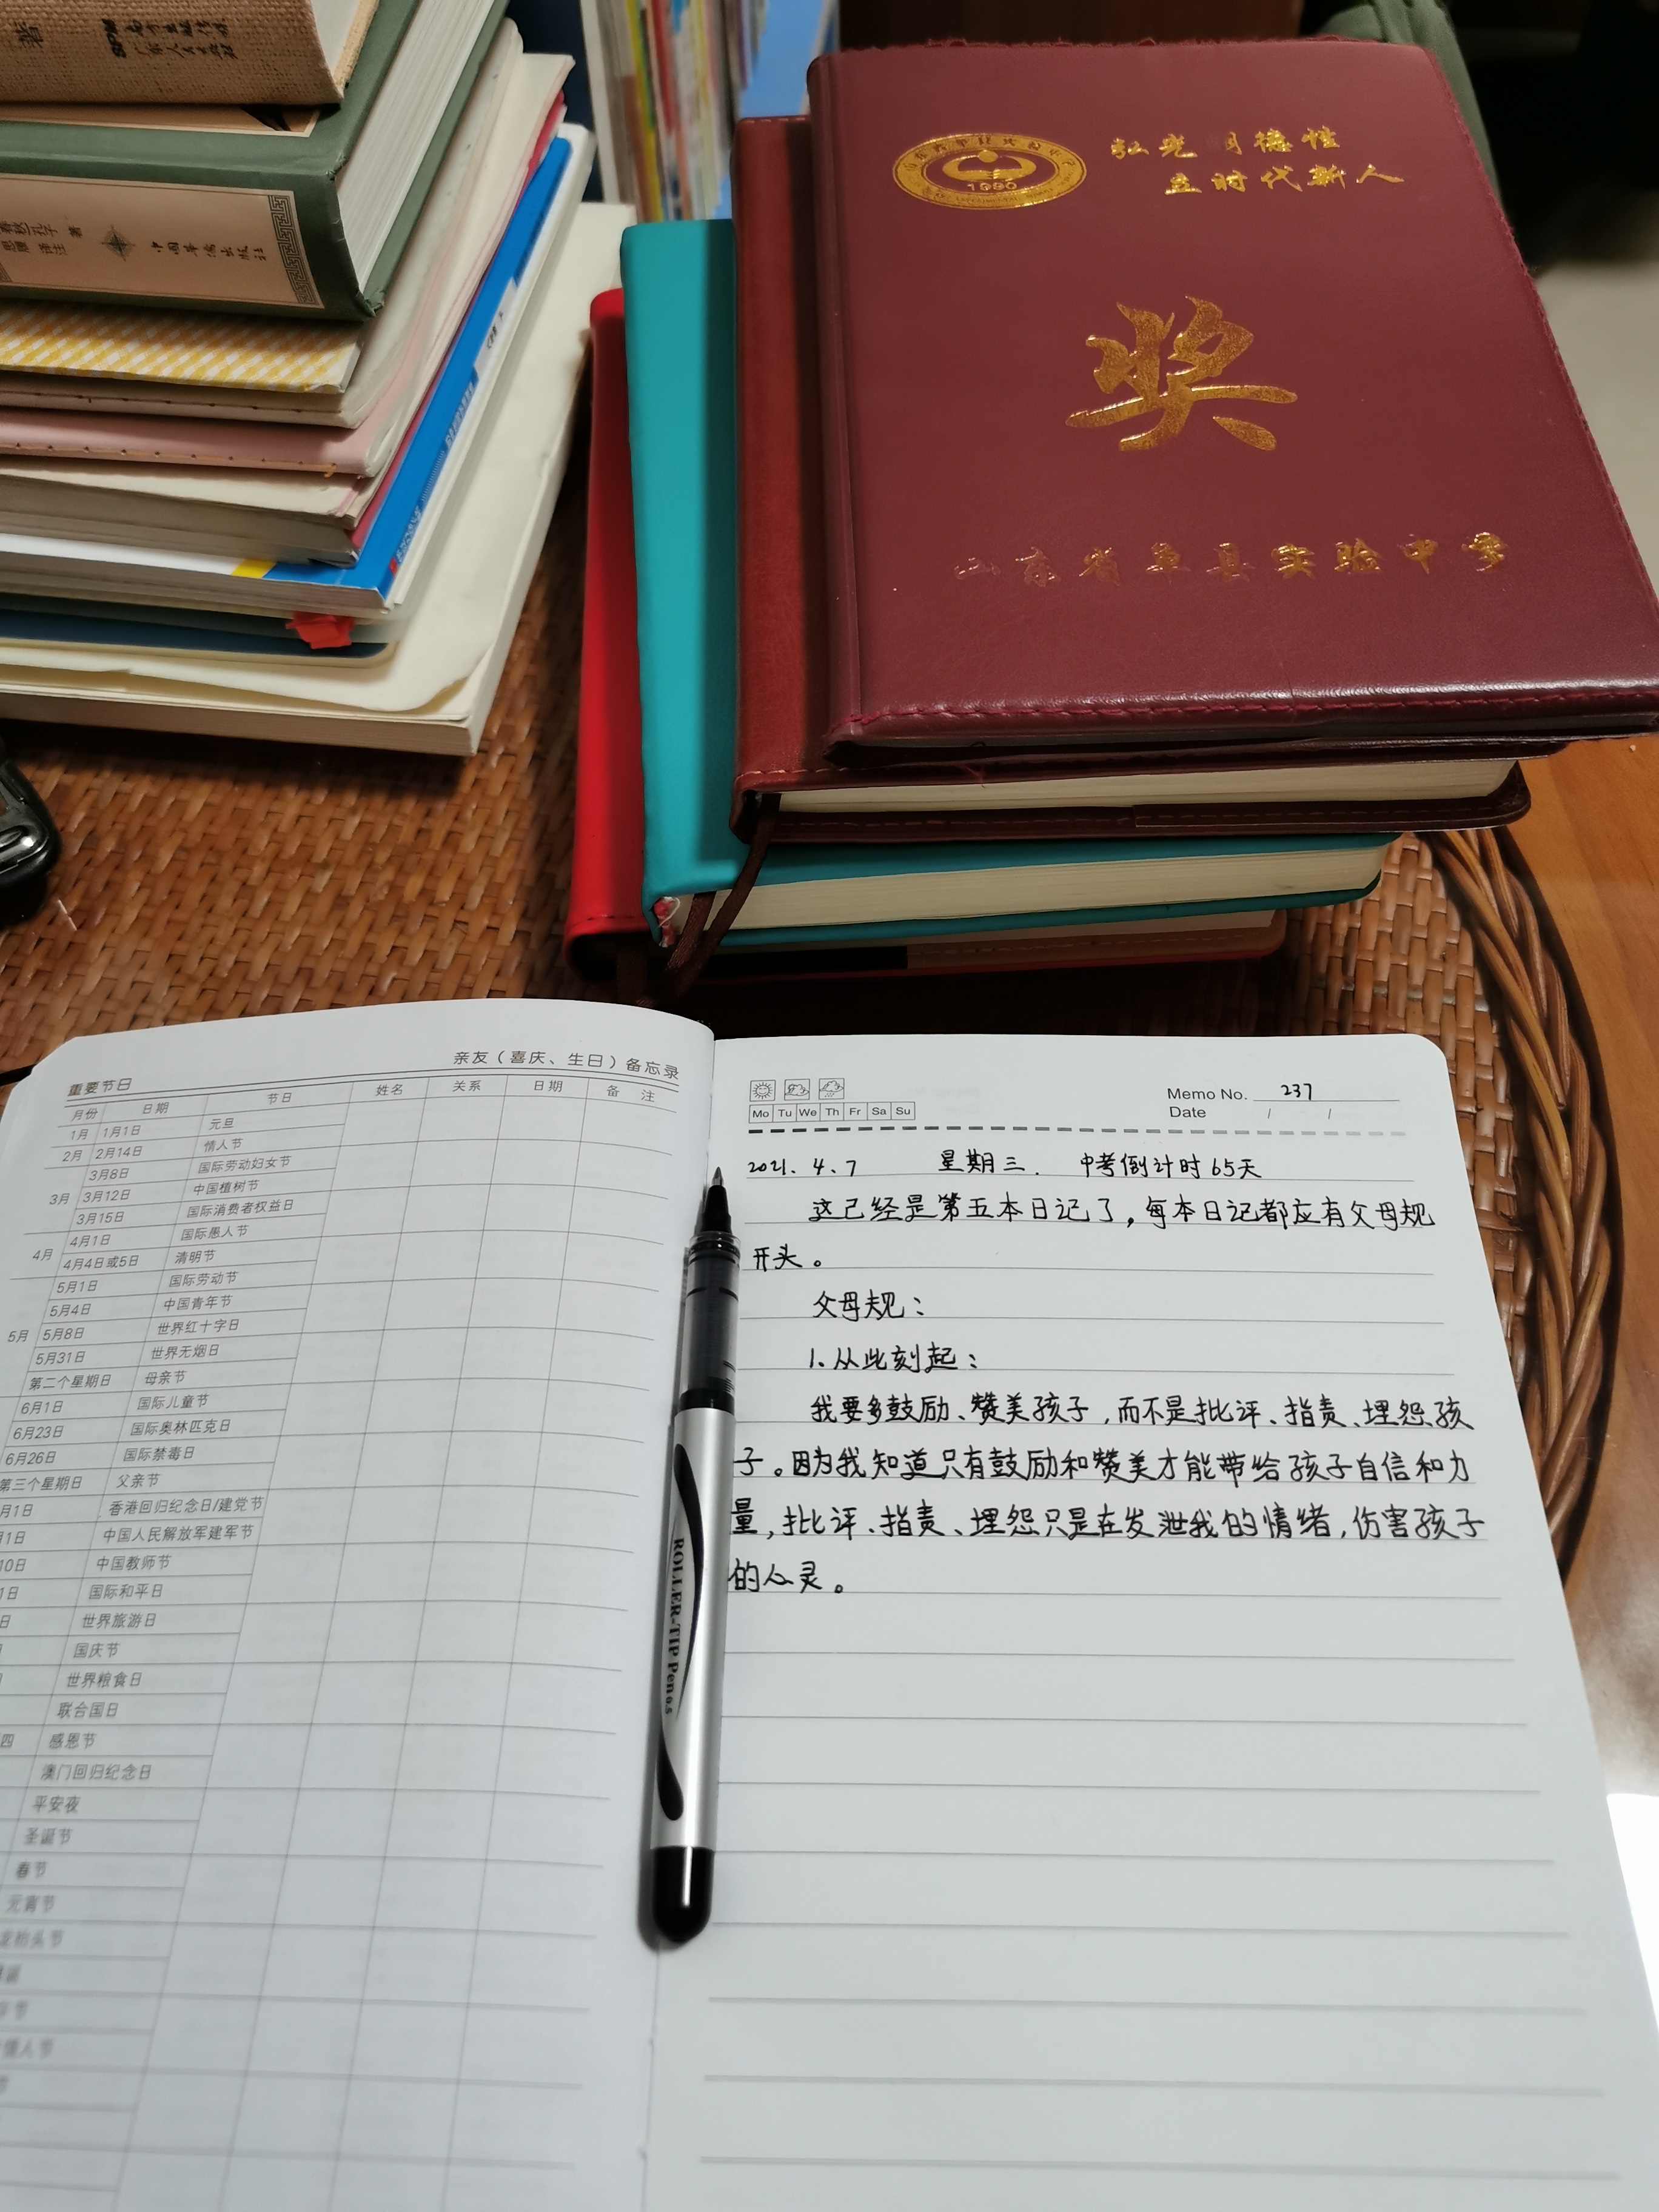 著
广东人民出版社
著
中国华侨出版社
1980
弘光明德性
立时代新人
奖
山东省单县实验中学
亲友（喜庆、生日）备忘录
重要节日
月份 日期 节日 姓名 关系 日期 备 注
1月 1月1日 元旦
2月 2月14日 情人节
3月8日 国际劳动妇女节
3月 3月12日 中国植树节
3月15日 国际消费者权益日
4月1日 国际愚人节
4月 4月4日或5日 清明节
5月1日 国际劳动节
5月4日 中国青年节
5月 5月8日 世界红十字日
5月31日 世界无烟日
第二个星期日 母亲节
6月1日 国际儿童节
6月23日 国际奥林匹克日
6月26日 国际禁毒日
第三个星期日 父亲节
月1日 香港回归纪念日/建党节
1日 中国人民解放军建军节
10日 中国教师节
1日 国际和平日
日 世界旅游日
国庆节
世界粮食日
联合国日
四 感恩节
澳门回归纪念日
平安夜
圣诞节
春节
元宵节
龙抬头节
情人节
ROLLER-TIP Pen 0.5
Memo No. 237
Mo Tu We Th Fr Sa Su
Date / /
2021.4.7 星期三. 中考倒计时65天
这已经是第五本日记了，每本日记都应有父母规
开头。
父母规：
1.从此刻起：
我要多鼓励、赞美孩子，而不是批评、指责、埋怨孩
子。因为我知道只有鼓励和赞美才能带给孩子自信和力
量，批评、指责、埋怨只是在发泄我的情绪，伤害孩子
的心灵。